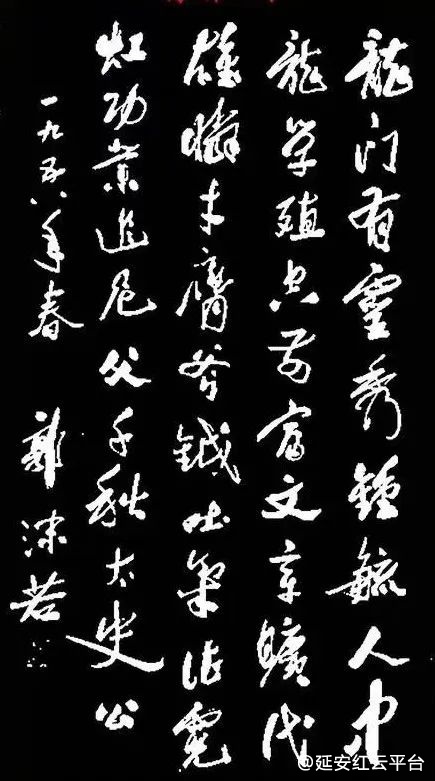 龍门有靈秀鍾毓人中
龍学殖空前富文章曠代
雄憐才膺斧鉞吐氣作霓
虹功業追尼父千秋太史公
一九五八年春 郭沫若
@延安红云平台